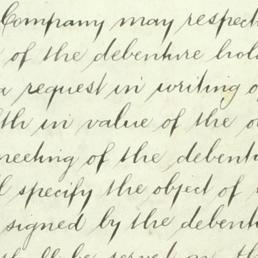 Company may respect
of the debenture hol
a request in writing o
th in value of the o
meeting of the debent
l specify the object of
signed by the debent
shall be served on th